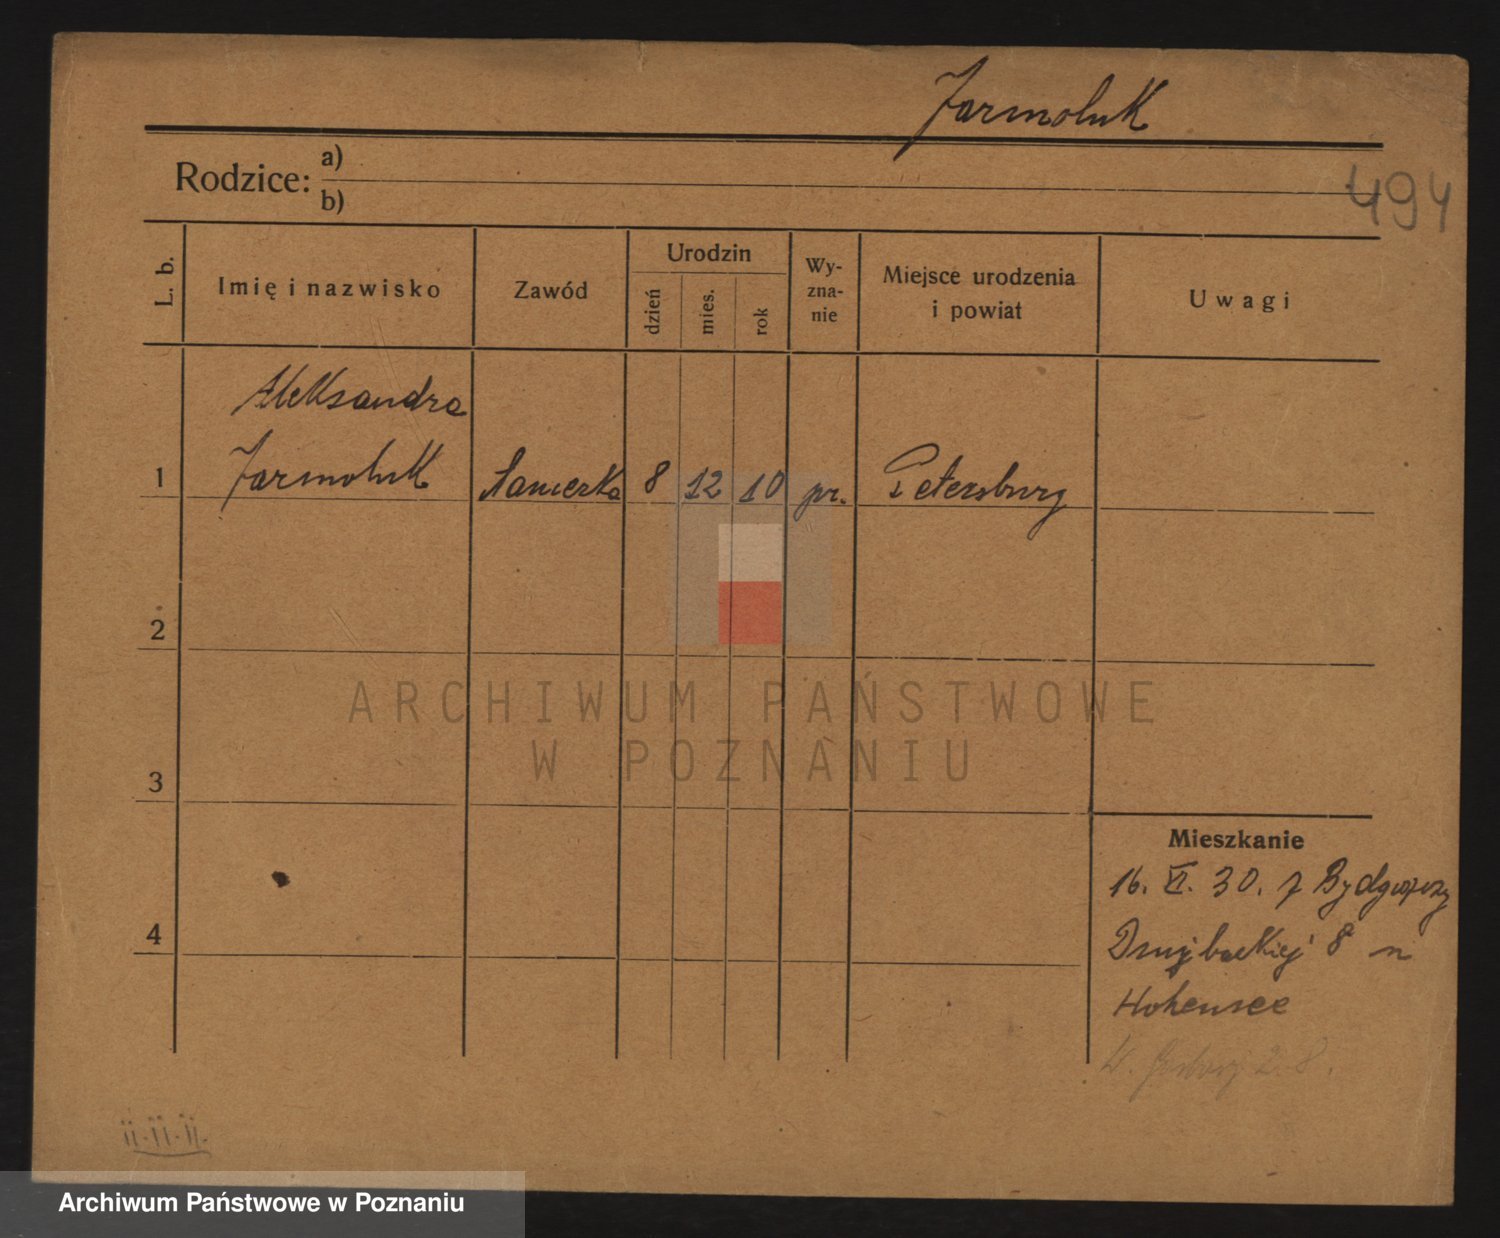 Jarmoluk
494
Rodzice: a)
b)
L. b.
Imię i nazwisko
Zawód
Urodzin
dzień
mies.
rok
Wy-
zna-
nie
Miejsce urodzenia
i powiat
Uwagi
Aleksandra
1 Jarmoluk 8 12 10 pr. Petersburg
2
ARCHIWUM PAŃSTWOWE
W POZNANIU
3
Mieszkanie
16. XI. 30. z Bydgoszczy
4
8 u
Hohensee
II.II.II.
Archiwum Państwowe w Poznaniu